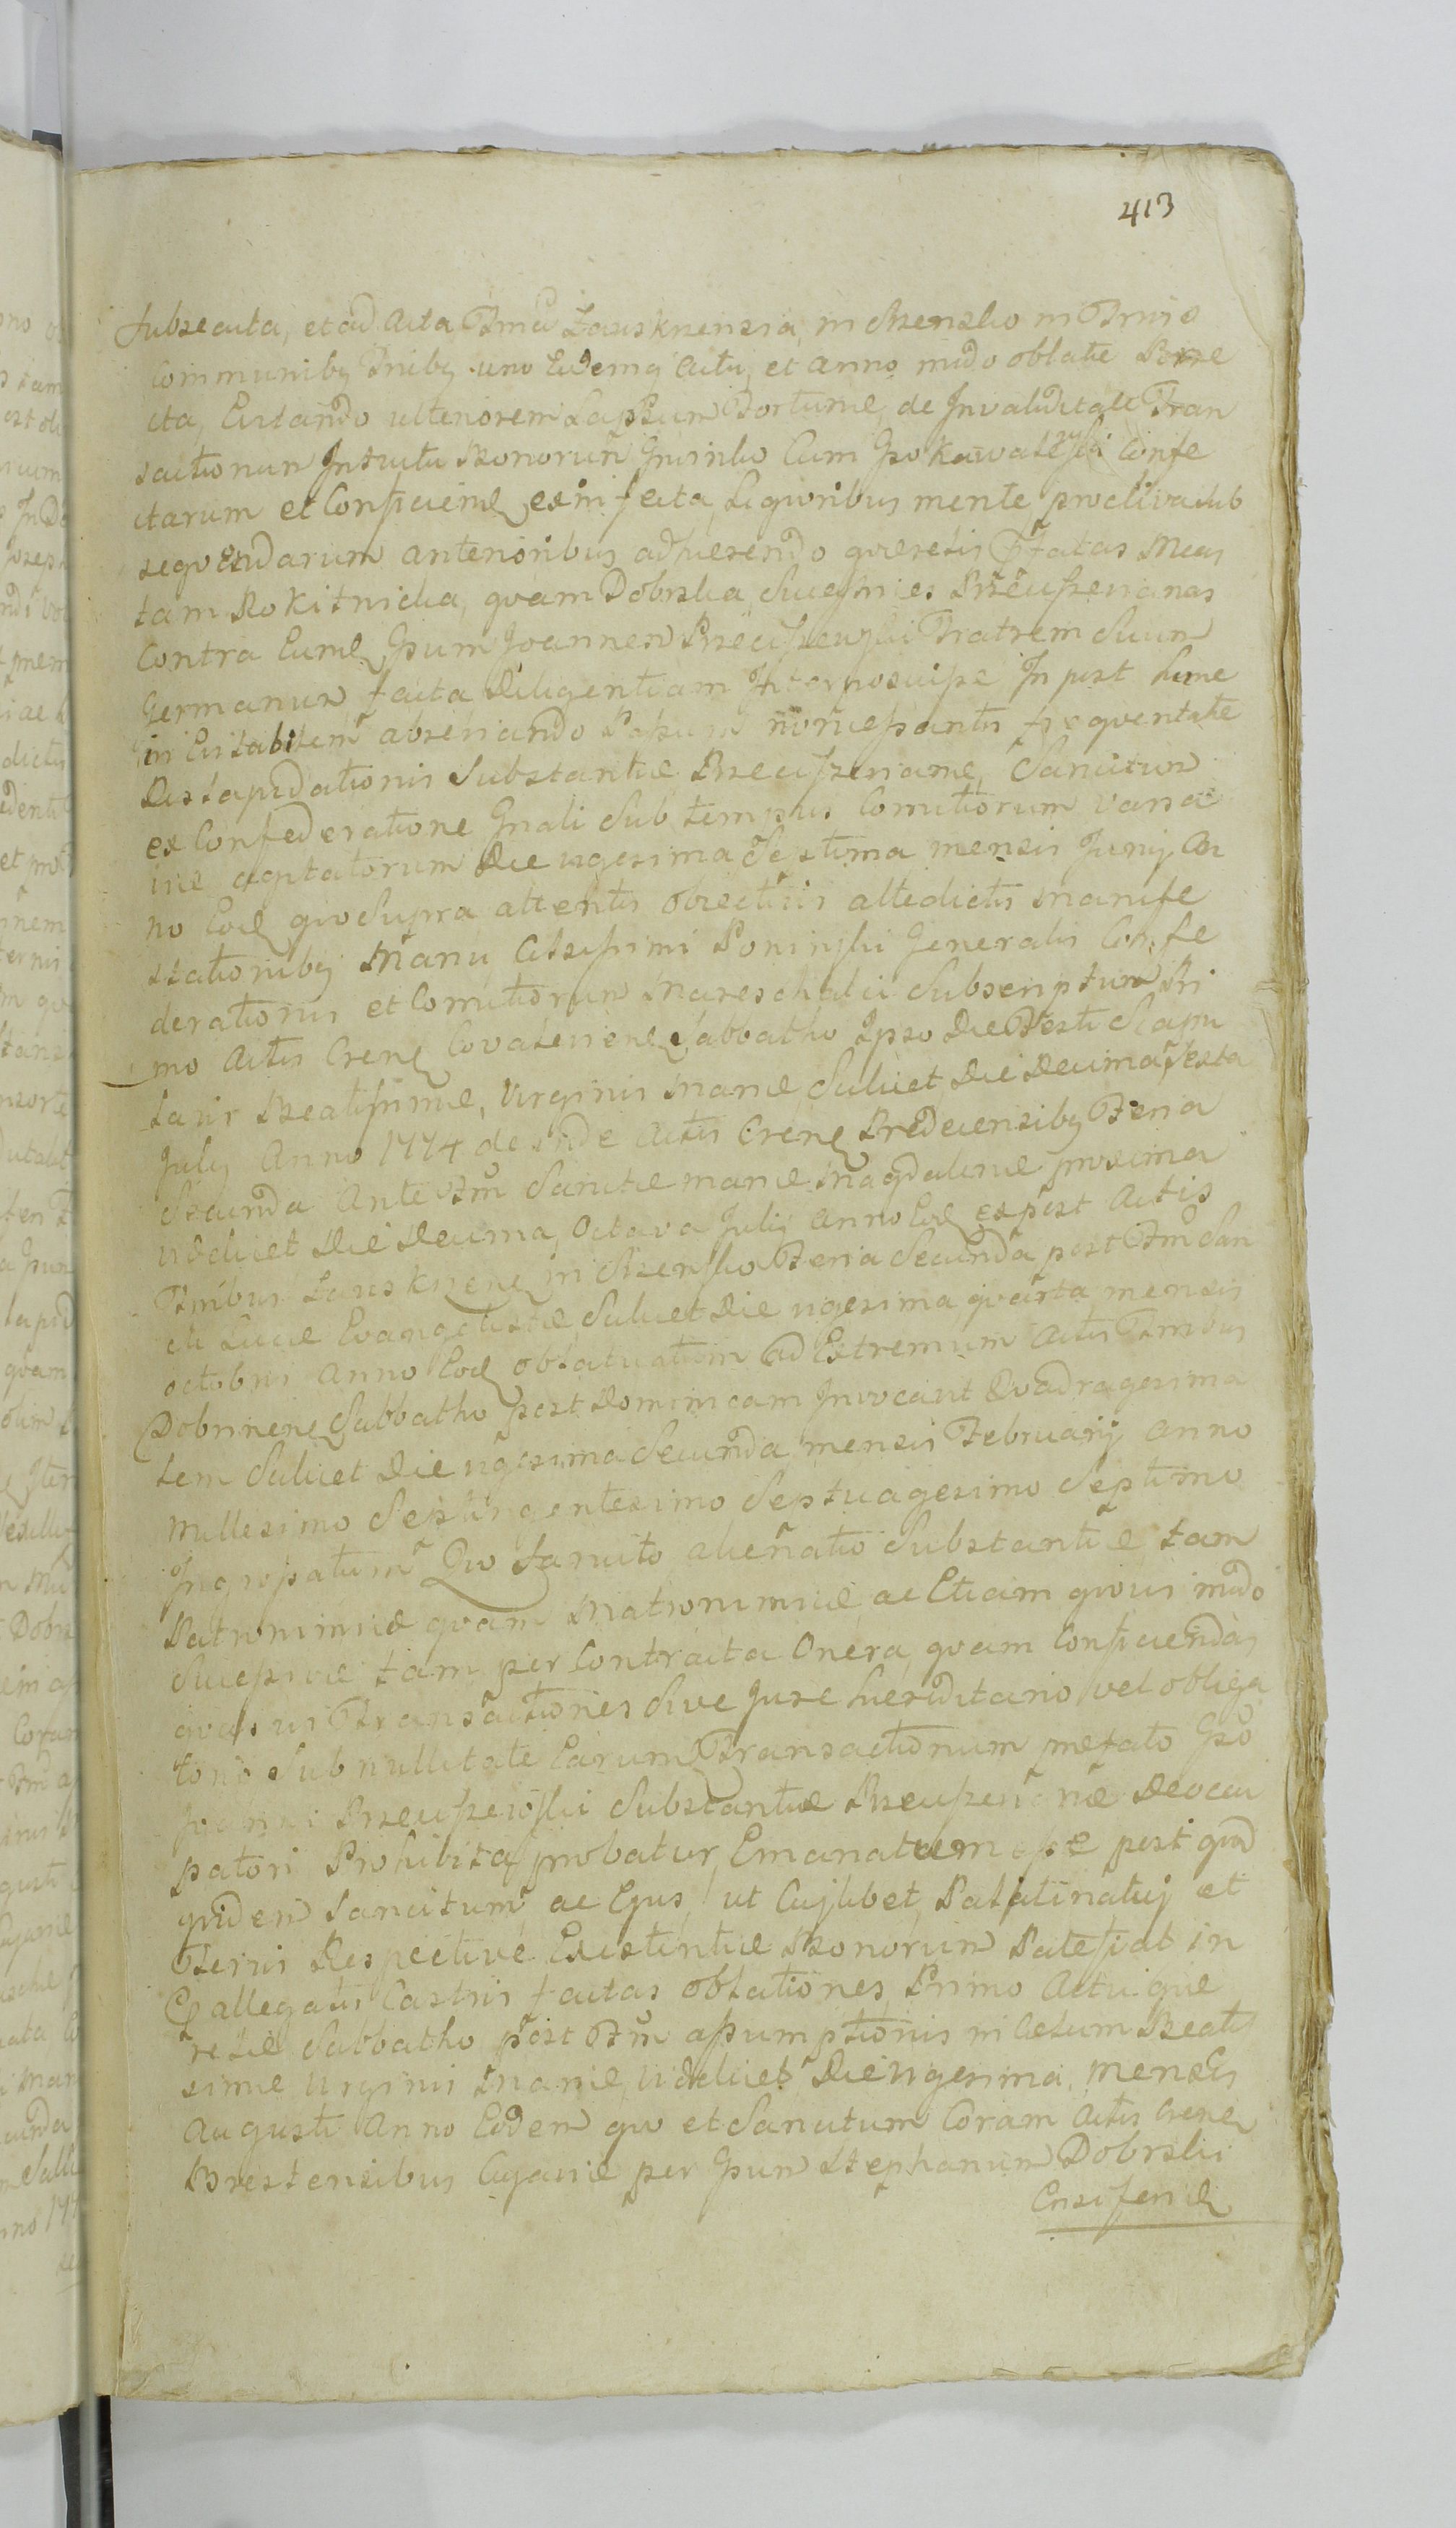 413
subsecuta, et ad Acta Trnīa Lausknensia, in Skensko in Trnis
Communibq Tnibq uno Eodemq Actu, et Anno mōdo oblatæ
cta, Evitando ulteriorem Lapsum Fortunæ, de Invaliditate Tran
sactionum Intuitu Bonorum Gninko Cum Gso Kawałeyski Confe
ctarum et Conficiend exinfecta, Ligioribus mente proclivi sub
seqvendarum anterioribus adhærendo qværelis p̃fatas Meas
tam Rokitnicka, qvam Dobrska, Succefsrices Przeciszevianas
Contra Eund Gsum Joannem Przeciszewski Fratrem Suum
Germanum facta Diligentiam Interposuifse In post hunc
in Evitabilem abseriando Lapsum nõncefsantis freqventatæ
Dislapidationis Substantiæ Przeciszevianæ, Sancitum
ex Confederatione Gñali Sub tempus Comitiorum Varsa
viæ agitatorum Die vigesima Septima mensis Junij An
no Eod qvo Supra attentis obiectivis attedictis Manife
stationibq Manu Celsifsimi Poninski Generalis Confe
derationis et Comitiorum Mareschalci Subscriptum Pri
mo Actis Crens Covaleviens Sabbatho Ipso Die Festi Scapu
laris Beatifsimæ, Virginis Mariæ Scilicet Die Decima Sexta
July Anno 1774 de inde Actis Crens Predecensibq Feria
Secunda Ante Fm̃ Sanctæ mariæ Magdalenæ proxima
videlicet Die Decima Octava Julij Anno Eod expost Actis
Tnibus Lausknens in Skensko Feria Secunda post Fm̃ San
cti Lucæ Evangelistæ Scilicet Die vigesima qvarta mensis
octobris Anno Eod oblatuatum ad Extremum Actis Tnibus
Dobrinens Sabbatho post Dominicam Invocavit Qvadragesima
lem Scilicet Die vigesima Secunda mensis Februarij Anno
Millesimo Septingentesimo Septuagesimo Septimo
Ingrofsatum Qvo Sancito alienatio Substantiæ tam
Patrimoniæ qvam Matrimoniæ, ac Etiam qvovis mōdo
Succefsivæ tam per Contracta Onera, qvam Conficiendas
qvasvis Transactiones Sive Jure hæreditario vel obliga
torio Sub nullitate Earum Transactionum mefato Gso
Joanni Przeciszewski Substantiæ Przeciszevianæ Deoccu
patori Prohibita probatur Emanatum efse post qvod
qvidem Sancitum ac Ejus, ut Cujlibet Palatinatuj et
Terris Respective Existentiæ Bonorum Patefiat in
Ex allegatis Castris factas oblationes Primo Actu qvæ
relæ Sabbatho post Fm̃ afsumptionis in Cœlum Beatis
simæ Virginis Mariæ, videlicet Die vigesima, Mensis
Augusti Anno Eodem qvo et Sancitum Coram Actis Crens
Brestensibus Cujaviæ per Gsum Stephanum Dobrski
Ensiferid